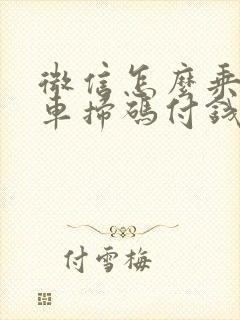 微信怎麼乘
車掃碼付錢
付雪梅